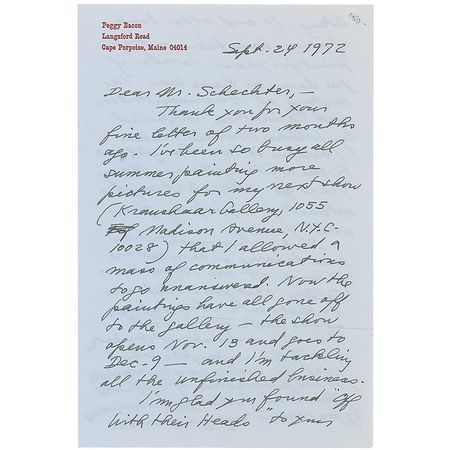 Peggy Bacon
Langsford Road
Cape Porpoise, Maine 04014
150-
Sept. 24 1972
Dear Mr. Schechter, –
Thank you for your
fine letter of two months
ago. I've been so busy all
summer painting more
pictures for my next show
(Kraushaar Gallery, 1055
Madison Avenue, N.Y.C.
10028) that I allowed a
mass of communications
to go unanswered. Now the
paintings have all gone off
to the gallery – the show
opens Nov. 13 and goes to
Dec. 9 – and I'm tackling
all the unfinished business.
I'm glad you found "Off
With Their Heads" to your